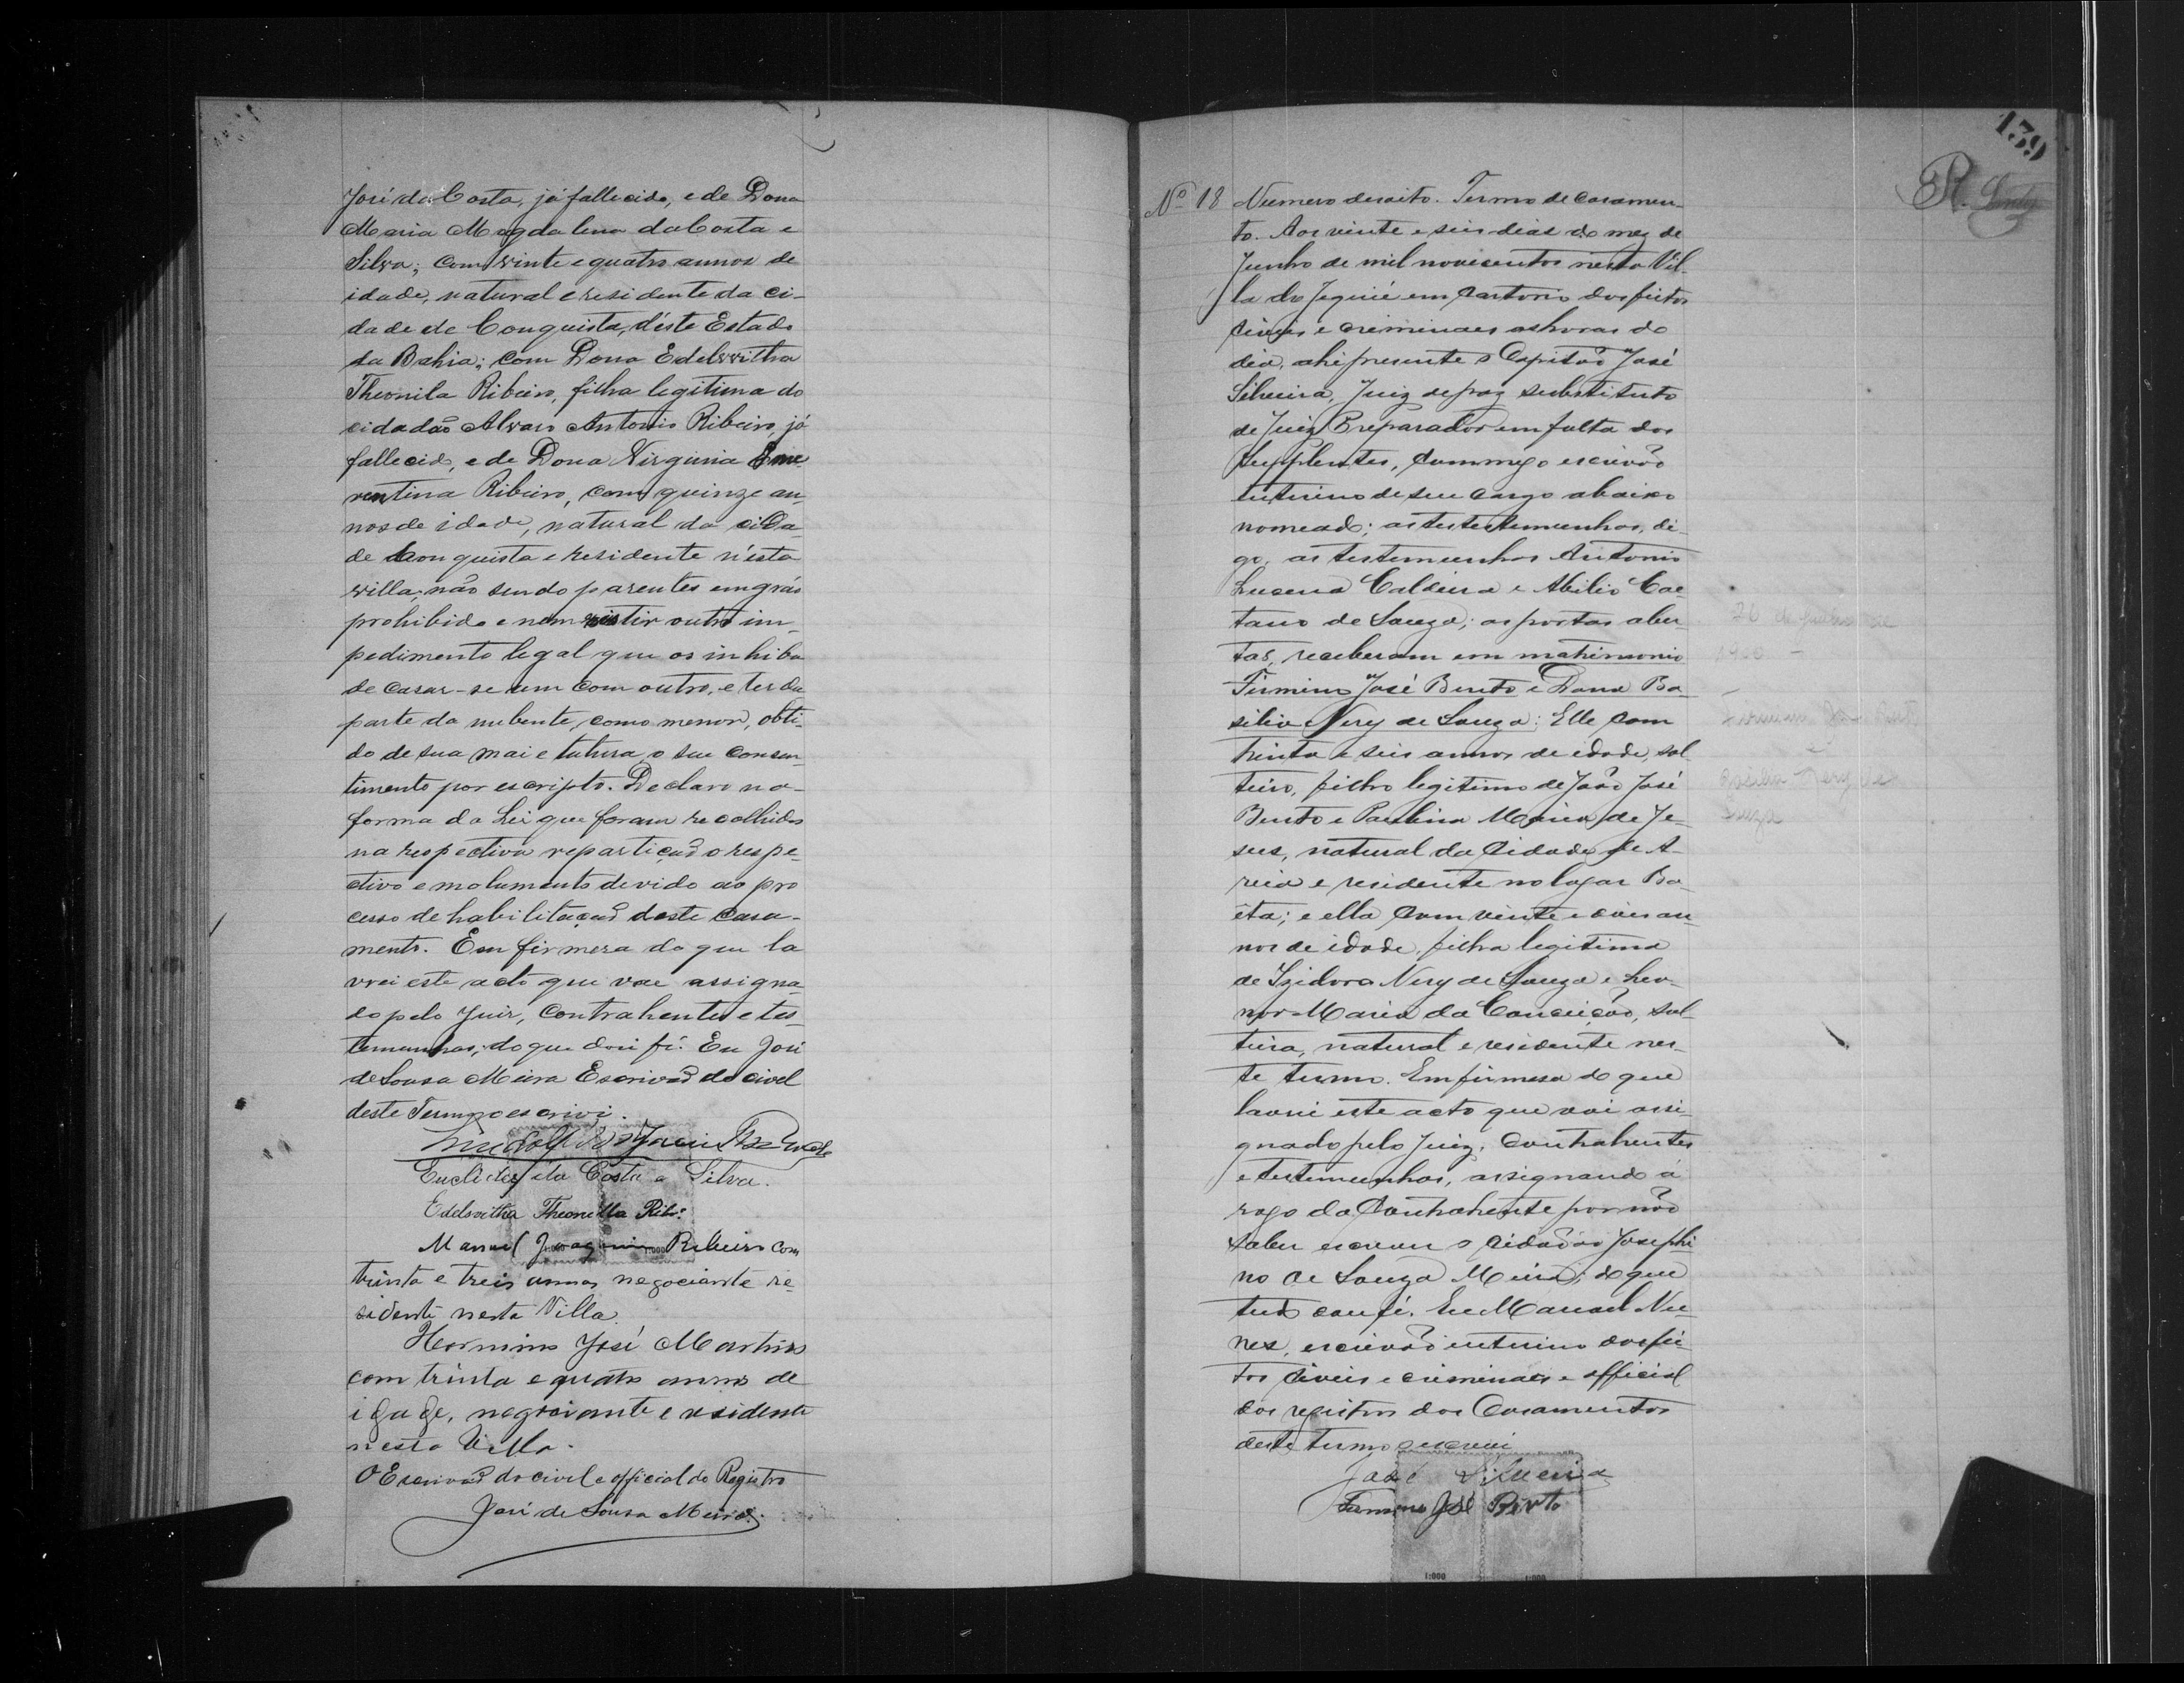 José da Costa, já fallecido, e de Dona
Maria Magdalena da Costa e
Silva; com vinte e quatro annos de
idade, natural e residente da ci-
dade de Conquista, déste Estado
da Bahia; com Dona Edelvvitha
Theonila Ribeiro, filha legitima do
cidadão Alvaro Antonio Ribeiro, já
fallecido, e de Dona Virginia Eme
rentina Ribeiro, com quinze an
nos de idade, natural da cida-
de Conquista e residente n'esta
villa; não sendo parentes em gráo
prohibido e nem existir outro im-
pedimento legal que os inhiba
de casar-se um com outro, e ter da
parte da nubente, como menor, obti-
do de sua mai e tutora, o seu consen-
timento por escripto. Declaro na
forma da Lei que foram recolhidos
na respectiva repartição o respe-
ctivo emolumento devido ao pro
cesso de habilitação deste casa-
mento. Em firmesa do que la
vrei este acto que vae assigna-
do pelo Juiz, Contrahentes e tes-
temunhas; do que dou fé. Eu José
de Sousa Meira Escrivão do civel
deste Termo o escrivi.
Euclides da Costa e Silva.
Edelvvitha Theonilla Ribr.º
Manoel Joaquim Ribeiro com
trinta e treis annos negociante re-
sidente nesta Villa.
Hermino José Martins
com trinta e quatro annos de
idade, negociante e residente
nesta Villa.
O Escrivão do civel e official do Registro
José de Sousa Meira.
139
R.
Nº 18 Numero desoito. Termo de casamen-
to. Aos vinte e seis dias do mez de
Junho de mil novecentos nesta Vil-
la de Jequié em cartorio dos feitos
civeis e criminaes as horas do
dia, ahi presente o Capitão José
Silveira, Juiz de paz substituto
de Juiz Preparador em falta dos
Supplentes, commigo escrivão
interino de seu cargo abaixo
nomeado; as testestemunhas, di-
go, as testemunhas Antonio
Lucena Caldeira e Abilio Cae-
tano de Souza; as portas aber-
tas, receberam em matrimonio
Firmino José Bento e Dona Ba-
silia Nery de Souza: Elle com
trinta e seis annos de idade, sol
teiro, filho legitimo de João José
Bento e Paulina Maria de Je-
sus, natural da Cidade de A-
reia e residente no lugar Ba-
êta; e ella com vinte e an-
nos de idade, filha legitima
de Izidoro Nery de Souza e Leo-
nor Maria da Conceição, sol-
teira, natural e residente nes-
te termo. Em firmesa do que
lavrei este acto que vai assi-
gnado pelo Juiz, contrahentes
e testemunhas, assignando a
rogo da Contrahente por não
saber escrever o cidadão Josephi
no de Souza Meira; do que
tudo dou fé. Eu Manoel Nu-
nes, escrivão interino dos fei-
tos civeis e criminaes e official
dos registros dos Casamentos
deste termo o escrevi
José Silveira
Firmino José Bento
1:000 1:000